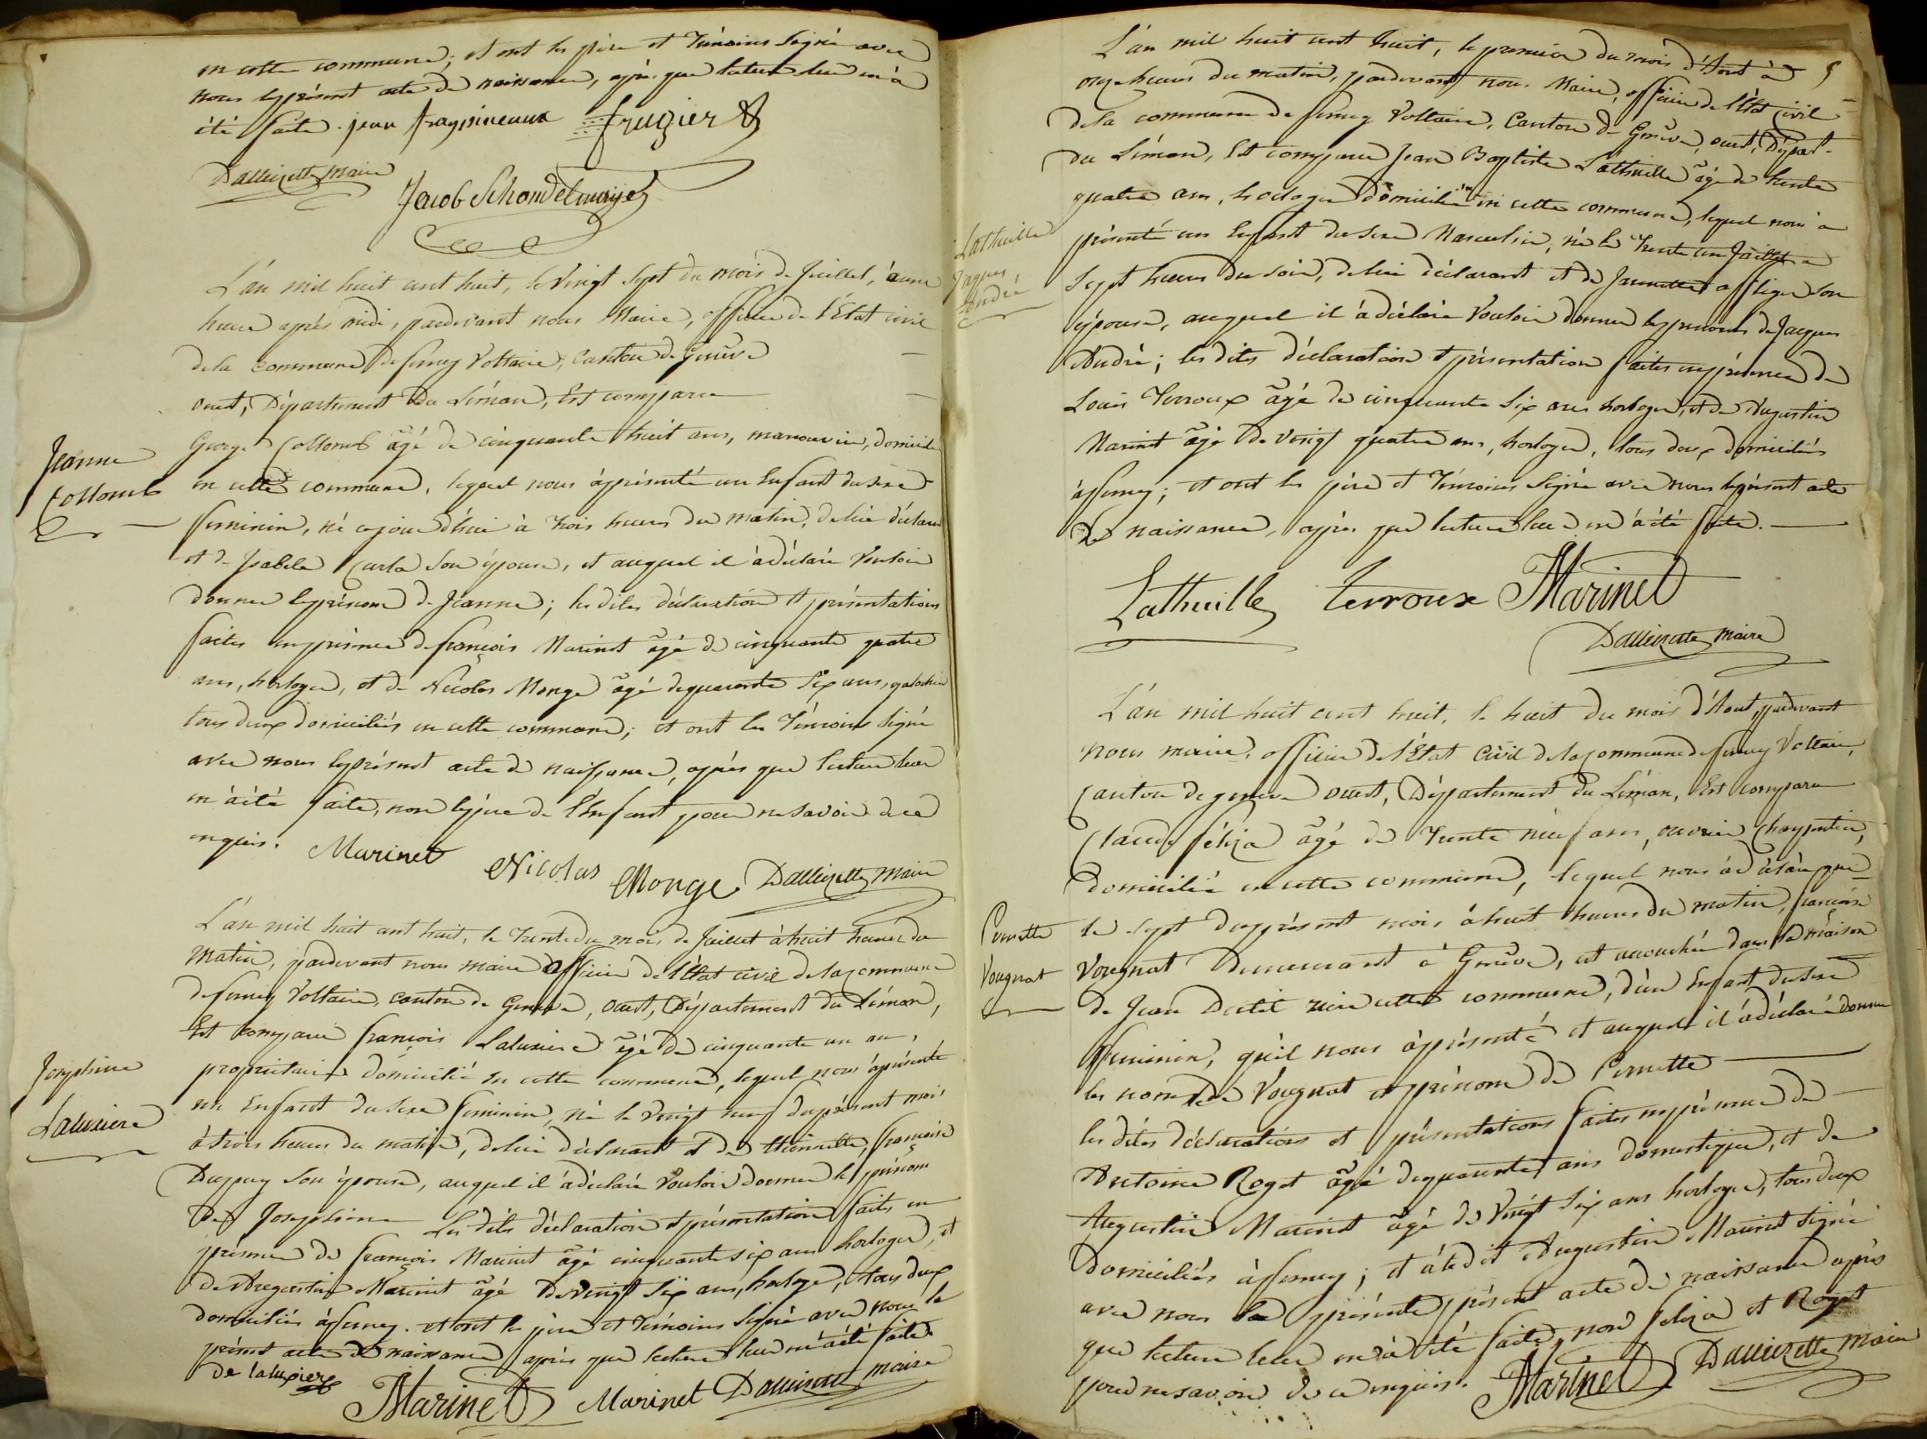 en cette commune, et ont les père et Témoins signé avec
nous le présent acte de naissance, après que lecture leur en a
été faite. jean fragnineaux frugier
Dallizette maire
Jacob Schondelmayer
L'an mil huit cent huit, le vingt sept du mois de Juillet, à une
heure après midi, pardevant nous Maire, officier de l'Etat civil
de la commune de ferney Voltaire, Canton de Genève
ouest, Département du Léman, Est comparu
Jeanne
Collomb
George Collomb âgé de cinquante huit ans, manouvrier, domicilié
en cette commune, lequel nous à présenté un Enfant du sexe
feminin, né cejourd'hui à trois heures du matin, de lui déclarant
et de Isabela Curta son épouse, et auquel il à déclaré vouloir
donner le prénom de Jeanne; les dites déclaration et présentation
faites en présence de françois Marinet âgé de cinquante quatre
ans, horloger, et de Nicolas Monge âgé de quarante six ans,
tous deux domiciliés en cette commune; et ont les Témoins signé
avec nous le présent acte de naissance, après que lecture leur
en à été faite, non le père de l'Enfant pour ne savoir de ce
enquis. Marinet Nicolas Monge Dallizette maire
L'an mil huit cent huit, le trente du mois de Juillet à huit heures du
matin, pardevant nous maire officier de l'Etat civil de la commune
de ferney Voltaire, canton de Genève, ouest, Département du Léman,
Josephine
Laluxiere
Est comparu françois Laluxiere âgé de cinquante un an,
proprietaire domicilié en cette commune, lequel nous à présenté
un Enfant du sexe feminin, né le vingt neuf du présent mois
à trois heures du matin, de lui déclarant et de thoinette, françoise
Dupuy son épouse, auquel il à déclaré vouloir donner le prénom
de Josephine Les dites déclaration et présentation faites en
présence de françois Marinet âgé cinquante six ans horloger, et
de Augustin Marinet âgé de vingt six ans, horloger, tous deux
domiciliés à ferney. et ont le père et Témoins signé avec nous le
présent acte de naissance après que lecture leur en à été faite.
De laluxiere Marinet Marinet Dallizette maire
5
L'an mil huit cent huit, le premier du mois d'Aout à
onze heures du matin, pardevant nous Maire, officier de l'Etat civil
de la commune de ferney Voltaire, Canton de Genève, ouest, Départ.
du Léman, Est comparu Jean Baptiste Lathuille âgé de trente
quatre ans, horloger domicilié en cette commune, lequel nous à
Lathuille
Jaques
André
présenté un Enfant du sexe Masculin, né le trente un Juillet à
sept heures du soir, de lui déclarant et de Jeannette affliger son
épouse, auquel il à déclaré vouloir donner les prénoms de Jacques
André; les dites déclaration et présentation faites en présence de
Louis Terroux âgé de cinquante six ans horloger, et de Augustin
Marinet âgé de vingt quatre ans, horloger, tous deux domiciliés
à ferney; et ont les père et Témoins signé avec nous le présent acte
de naissance, après que lecture leur en à été faite.
Lathuille Terroux Marinet
Dallizette maire
L'an mil huit cent huit, le huit du mois d'Aout, pardevant
nous maire, officier de l'Etat civil de la commune de ferney Voltaire,
canton de geneve ouest, Département du Léman, Est comparu
Claude féliza âgé de trente neuf ans, ouvrier charpentier,
domicilié en cette commune, lequel nous à déclaré que
Pernette
Vougnat
le sept du présent mois à huit heures du matin, françoise
Vougnat demeurant à Genève, est accouchée dans la maison
de Jean Dectit rière cette commune, d'un Enfant du sexe
feminin, qu'il nous à présenté et auquel il à déclaré donner
les noms de Vougnat et prénom de Pernette
les dites déclarations et présentations faites en présence de
Antoine Roget âgé de quarante ans domestique, et de
Augustin Marinet âgé de vingt six ans horloger, tous deux
domiciliés à ferney; et à le dit Augustin Marinet signé
avec nous le présent acte de naissance après
que lecture leur en à été faite, non feliza et Roget
pour ne savoir de ce enquis. Marinet Dallizette maire